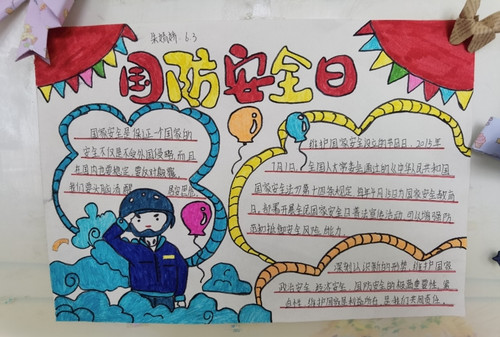 朱嫣嫣 6.3
国防安全日
国家安全是保证一个国家的
安全不仅是不受外国侵略,而且
在国内也要稳定 要反对颠覆
我们要头脑清醒 居安思危
维护国家安全设立的节日日,2015年
7月1日,全国人大常委会通过的《中华人民共和国
国家安全法》第十四条规定 每年4月15日为国家安全教育
日,部署开展全民国家安全日普法宣传活动 可以增强防
范和抵御安全风险能力
深刻认识新的形势 维护国家
政治安全 经济安全 国防安全的极端重要性 紧
迫性 维护国家是利益所在 是我们共同责任。